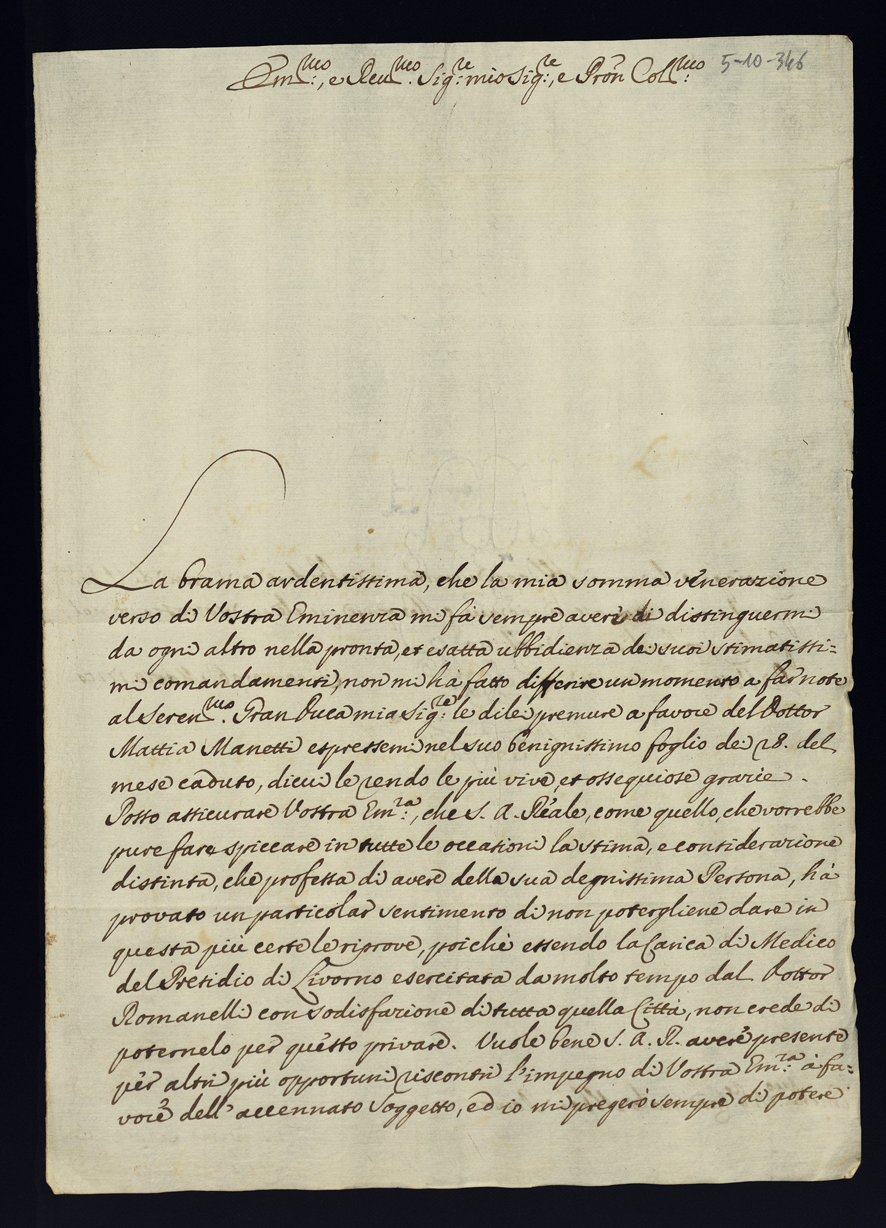 Em:ᵐᵒ, e Reu:ᵐᵒ Sig:ʳᵉ mio Sig:ʳᵉ, e Pron̄ Col:ᵐᵒ 5-10-346
La brama ardentissima, che la mia somma venerazione
verso di Vostra Eminenza mi fà sempre avere di distinguermi
da ogni altro nella pronta, et esatta ubbidienza de suoi stimatissi=
mi comandamenti, non mi hà fatto differire un momento a far note
al Seren:ᵐᵒ Gran Duca mia Sig:ʳᵉ le di lei premure a favore del Dottor
Mattia Manetti espressemi nel suo benignissimo foglio de 28. del
mese caduto, di cui le rendo le più vive, et ossequiose grazie.
Posso assicurare Vostra Em:ᶻᵃ, che S. A. Reale, come quello, che vorrebbe
pure fare spiccare in tutte le occasioni la stima, e considerazione
distinta, che professa di avere della sua degnissima Persona, hà
provato un particolar sentimento di non potergliene dare in
questa più certe le riprove, poichè essendo la Carica di Medico
del Presidio di Livorno esercitata da molto tempo dal Dottor
Romanelli con sodisfazione di tutta quella Città, non crede di
poternelo per questo privare. Vuole bene S. A. R. avere presente
per altri più opportuni riscontri l'impegno di Vostra Em:ᶻᵃ à fa=
vore dell' accennato Soggetto, ed io mi pregerò sempre di potere